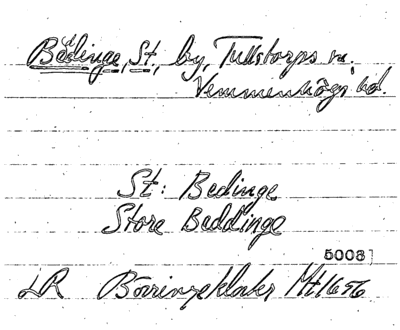 Bedinge, St., by, Tullstorps sn.
Vemmenhögs hd.
St: Bedinge
Store Beddinge
5008
LR Börringekloster Mt 1656